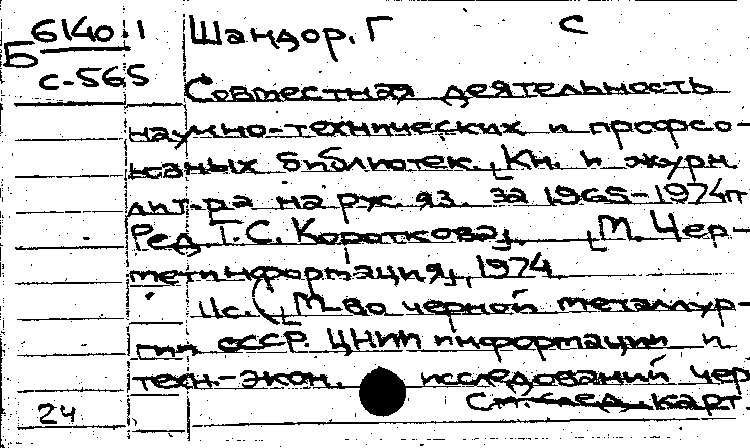 Б 6140.1 Шандор. Г С
с-565
Совместная деятельность
научно-технических и профсо-
юзных библиотек. [Кн. и журн.
лит-ра на рус. яз. за 1965-1974гг
Ред. Т.С. Короткова]. [М. Чер-
метинформация], 1974.
11с. ([М-во черной металлур-
гии СССР. ЦНИИ информации и
техн.-экон. исследований чер
См. след. карт.
24